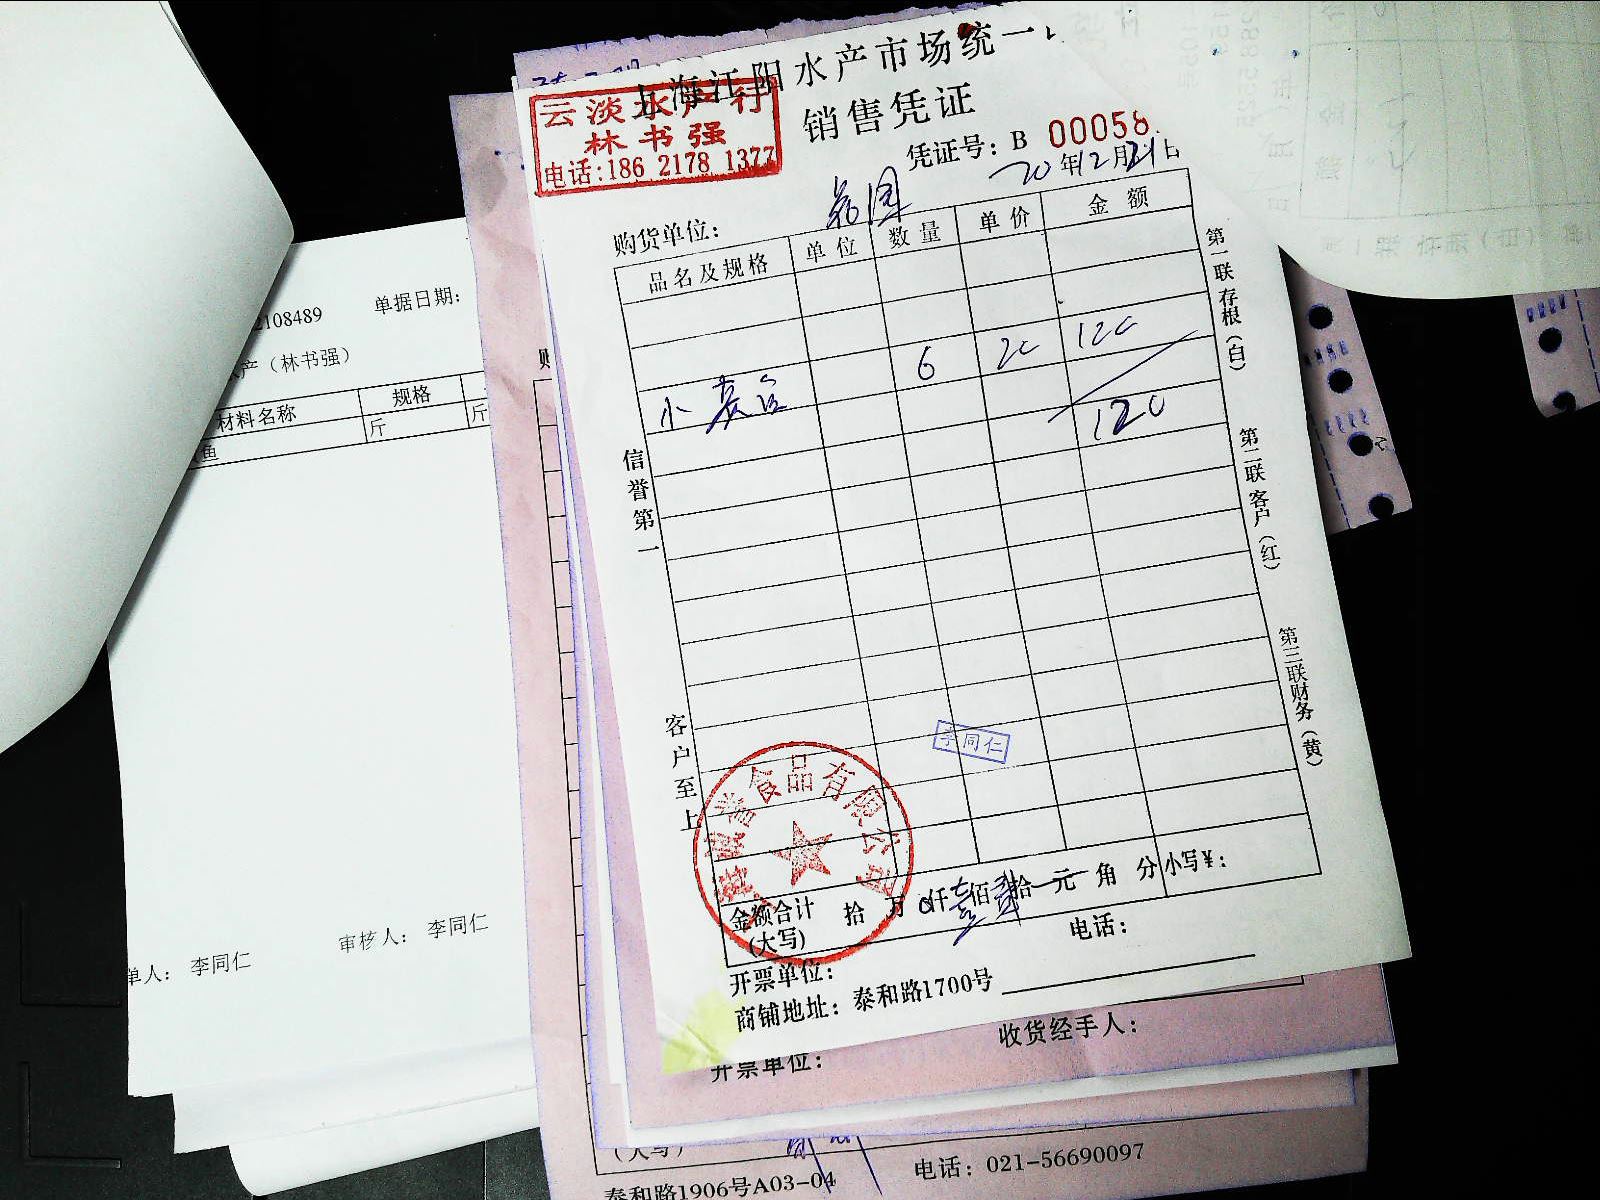 上海江阳水产市场统一
销售凭证
云淡水产行
林书强
电话:186 2178 1377
凭证号: B 00058
20年12月21日
购货单位:
品名及规格 单位 数量 单价 金额
6 20 120
小黄鱼
120
信誉第一
客户至上
第一联存根(白)
第二联客户(红)
第三联财务(黄)
李同仁
誉食品有限公司
金额合计 拾 万 0仟 壹佰 贰拾 元 角 分 小写¥:
(大写)
电话:
开票单位:
商铺地址: 泰和路1700号
收货经手人:
开票单位:
(大写)
电话: 021-56690097
泰和路1906号A03-04
2108489 单据日期:
产(林书强)
材料名称 规格
鱼 斤 斤
单人: 李同仁 审核人: 李同仁